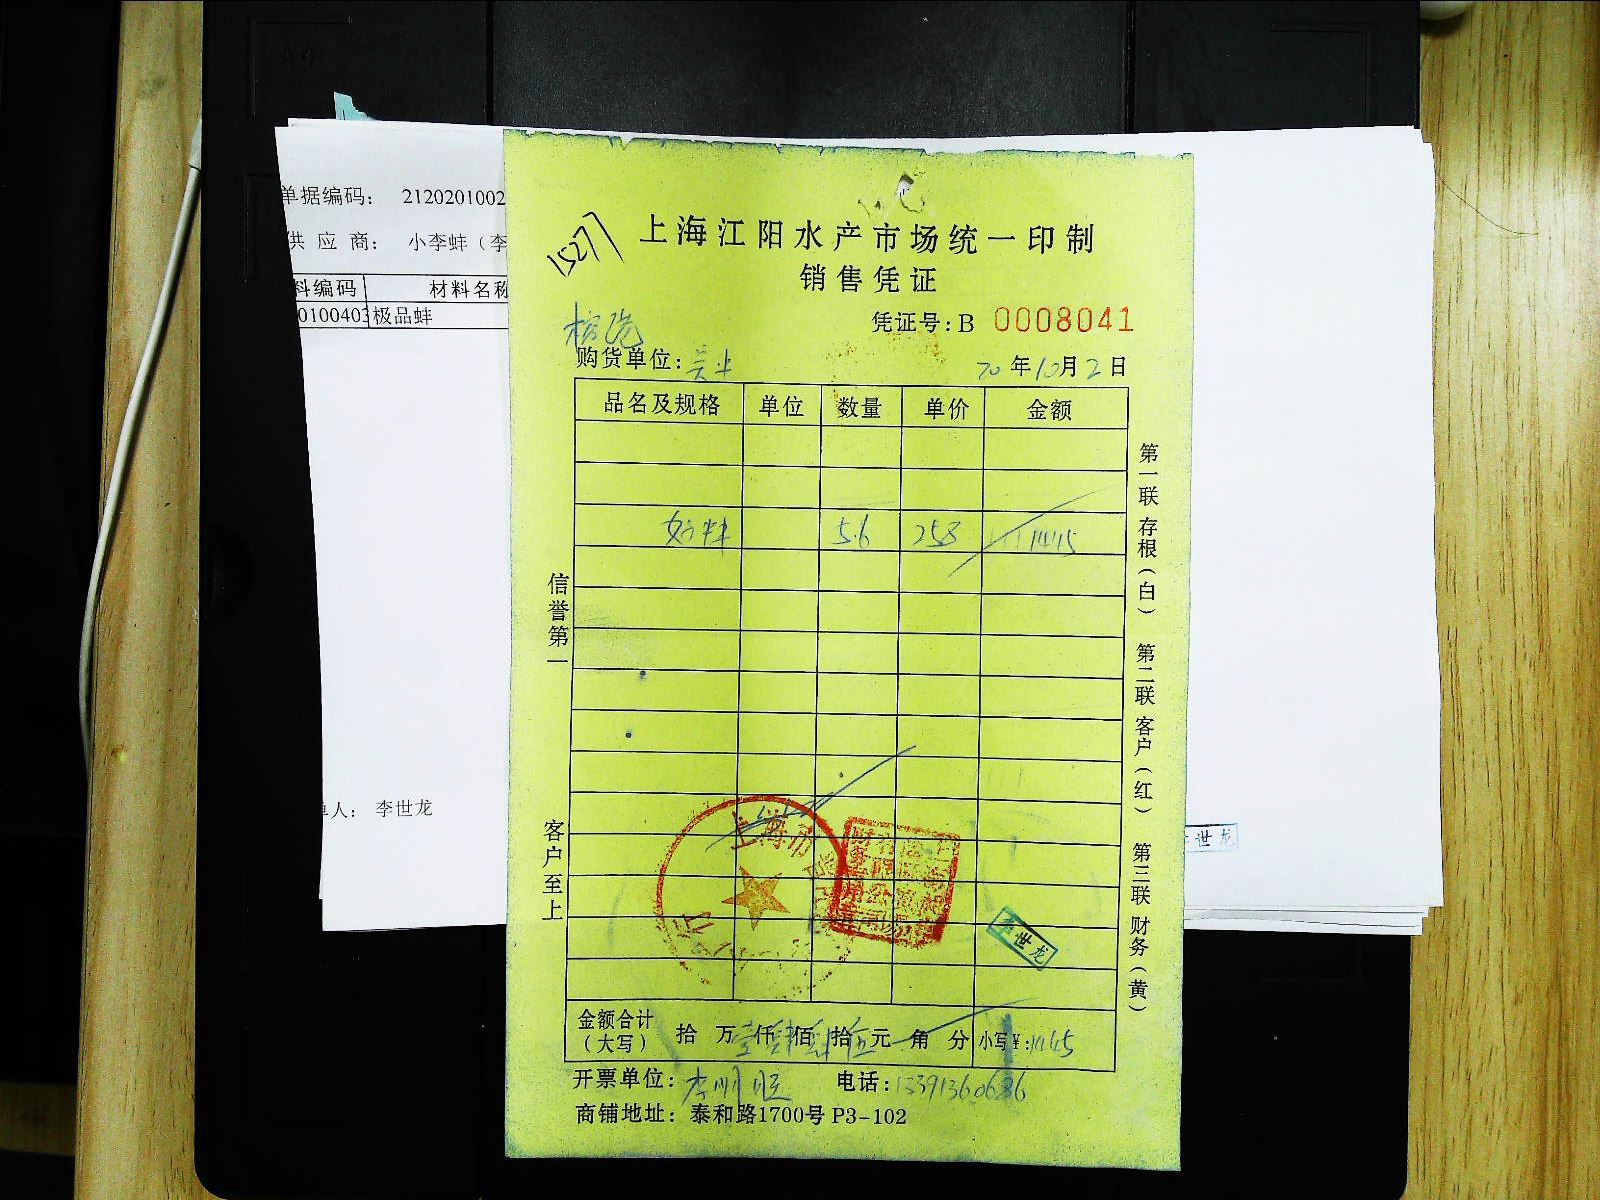 单据编码： 2120201002
供 应 商： 小李蚌（李
料编码 材料名称
0100403 极品蚌
人： 李世龙
15277
上海江阳水产市场统一印制
销售凭证
凭证号：B 0008041
购货单位：
20年10月2日
品名及规格 单位 数量 单价 金额
好蚌 5.6 258 1445
信誉第一 客户至上
第一联 存根（白） 第二联 客户（红） 第三联 财务（黄）
上海市
李世龙
世龙
金额合计（大写） 拾 万壹仟肆佰肆拾伍元 角 分 小写¥：1445
开票单位： 电话：13391360636
商铺地址：泰和路1700号 P3-102